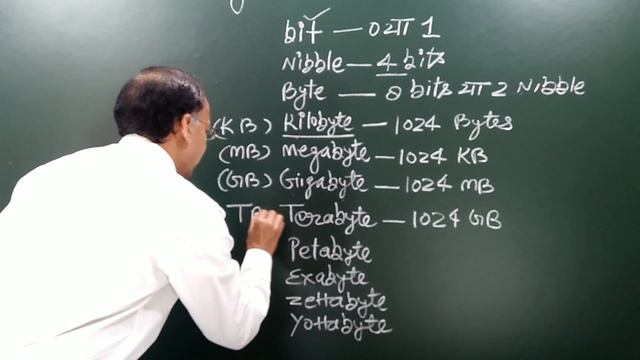 bit — 0 या 1
Nibble — 4 bits
Byte — 8 bits या 2 Nibble
(KB) Kilobyte — 1024 Bytes
(MB) Megabyte — 1024 KB
(GB) Gigabyte — 1024 MB
TB Terabyte — 1024 GB
Petabyte
Exabyte
Zettabyte
Yottabyte